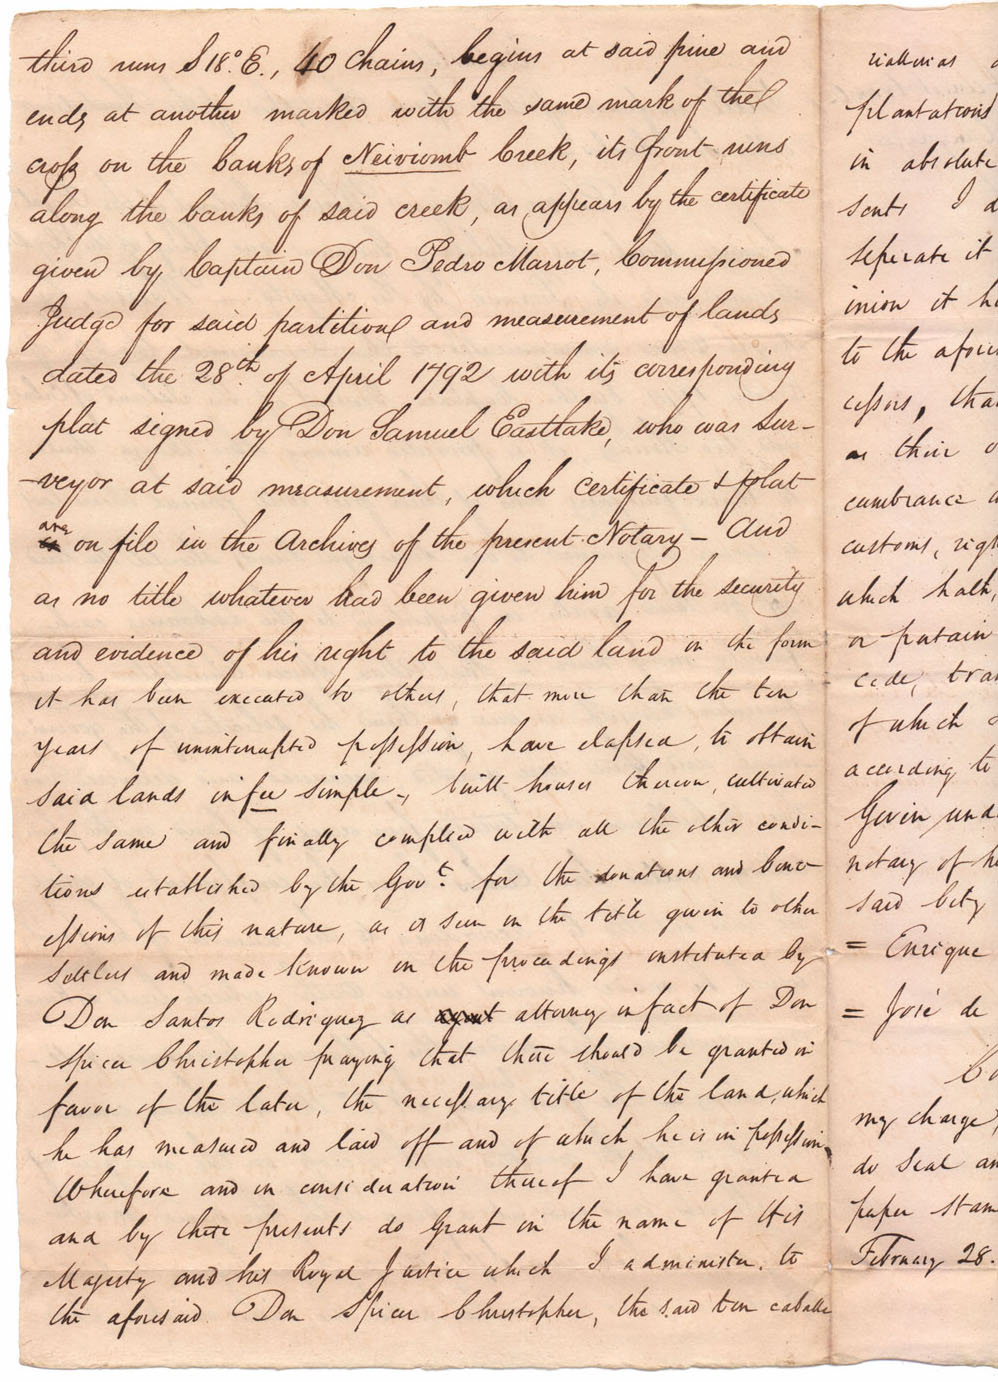 third runs S 18° E., 40 Chains, begins at said pine and
ends at another marked with the same mark of the
cross on the banks of Neiviomb Creek, its front runs
along the banks of said creek, as appears by the certificate
given by Captain Don Pedro Marrot, Commissioned
Judge for said partition and measurement of lands
dated the 28th. of April 1792 with its corresponding
plat signed by Don Samuel Eastlake, who was Sur-
-veyor at said measurement, which certificate & plat
are on file in the Archives of the present Notary - And
as no title whatever had been given him for the security
and evidence of his right to the said land in the form
it has been executed to others, that more than the ten
years of uninterrupted possession, have elapsed, to obtain
said lands in fee simple -, built houses thereon, cultivated
the same and finally complied with all the other condi-
tions established by the Govt. for the donations and conc-
essions of this nature, as is seen in the title given to other
settlers and made known in the proceedings instituted by
Don Santos Rodriguez as agent attorney in fact of Don
Spicer Christopher praying that there should be granted in
favor of the later, the necessary title of the land, which
he has measured and laid off and of which he is in possession
Wherefore and in consideration thereof I have granted
and by these presents do Grant in the name of His
Majesty and his Royal Justice which I administer, to
the aforesaid Don Spicer Christopher, the said ten caballe
plantations
in absolute
sents I d
seperate it
inion it h
to the afores
cessors, tha
as their o
cumbrance
customs, righ
which hath,
or pertain
cede, tran
of which
according to
Given und
notary of h
said City
= Enrique
= José de
Co
my charge,
do Seal an
paper stam
February 28.